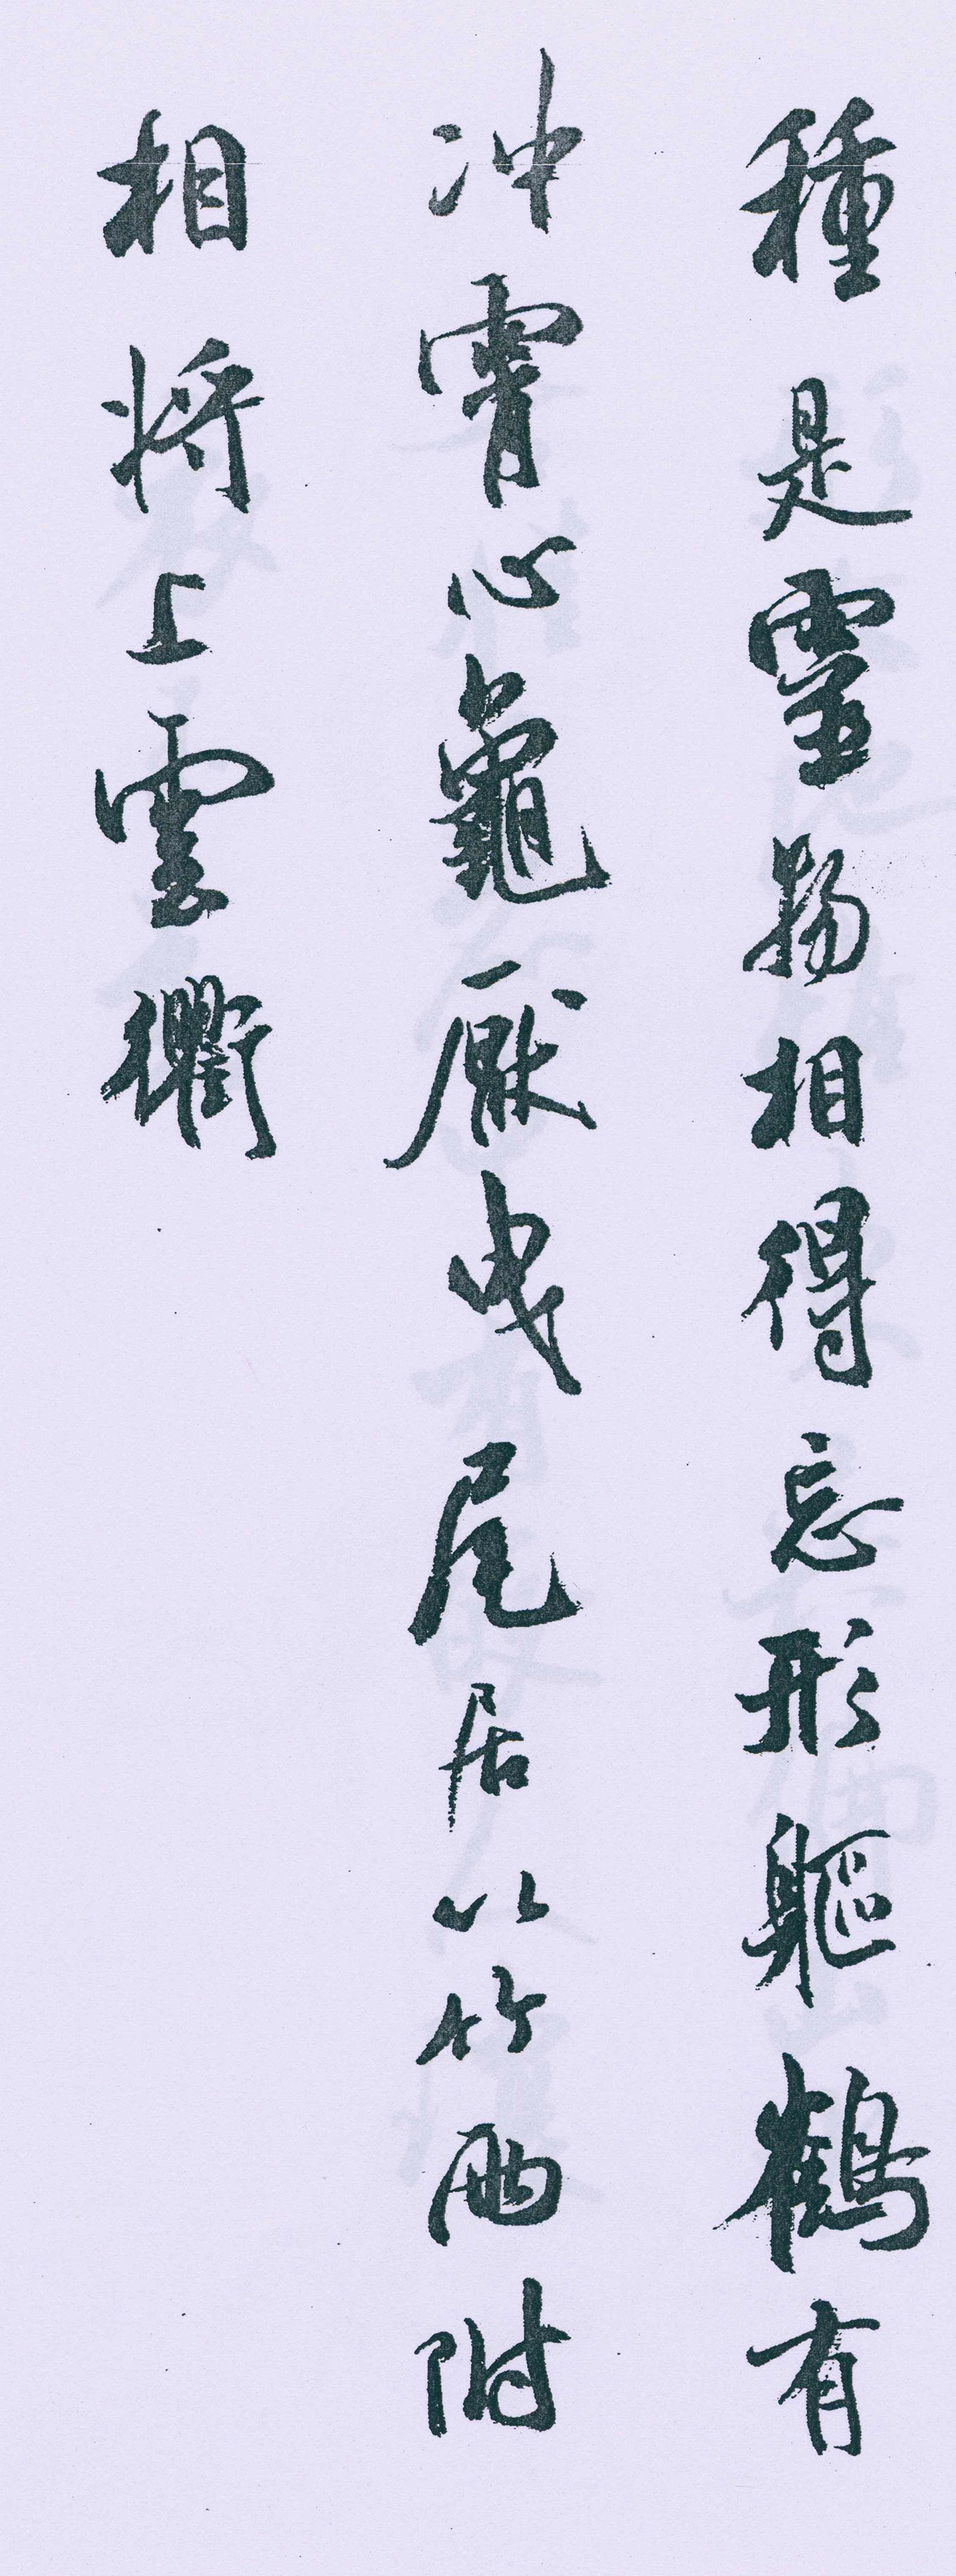 種是靈物相得忘形軀鶴有
冲霄心龜厭曳尾居以竹兩附
相將上雲衢